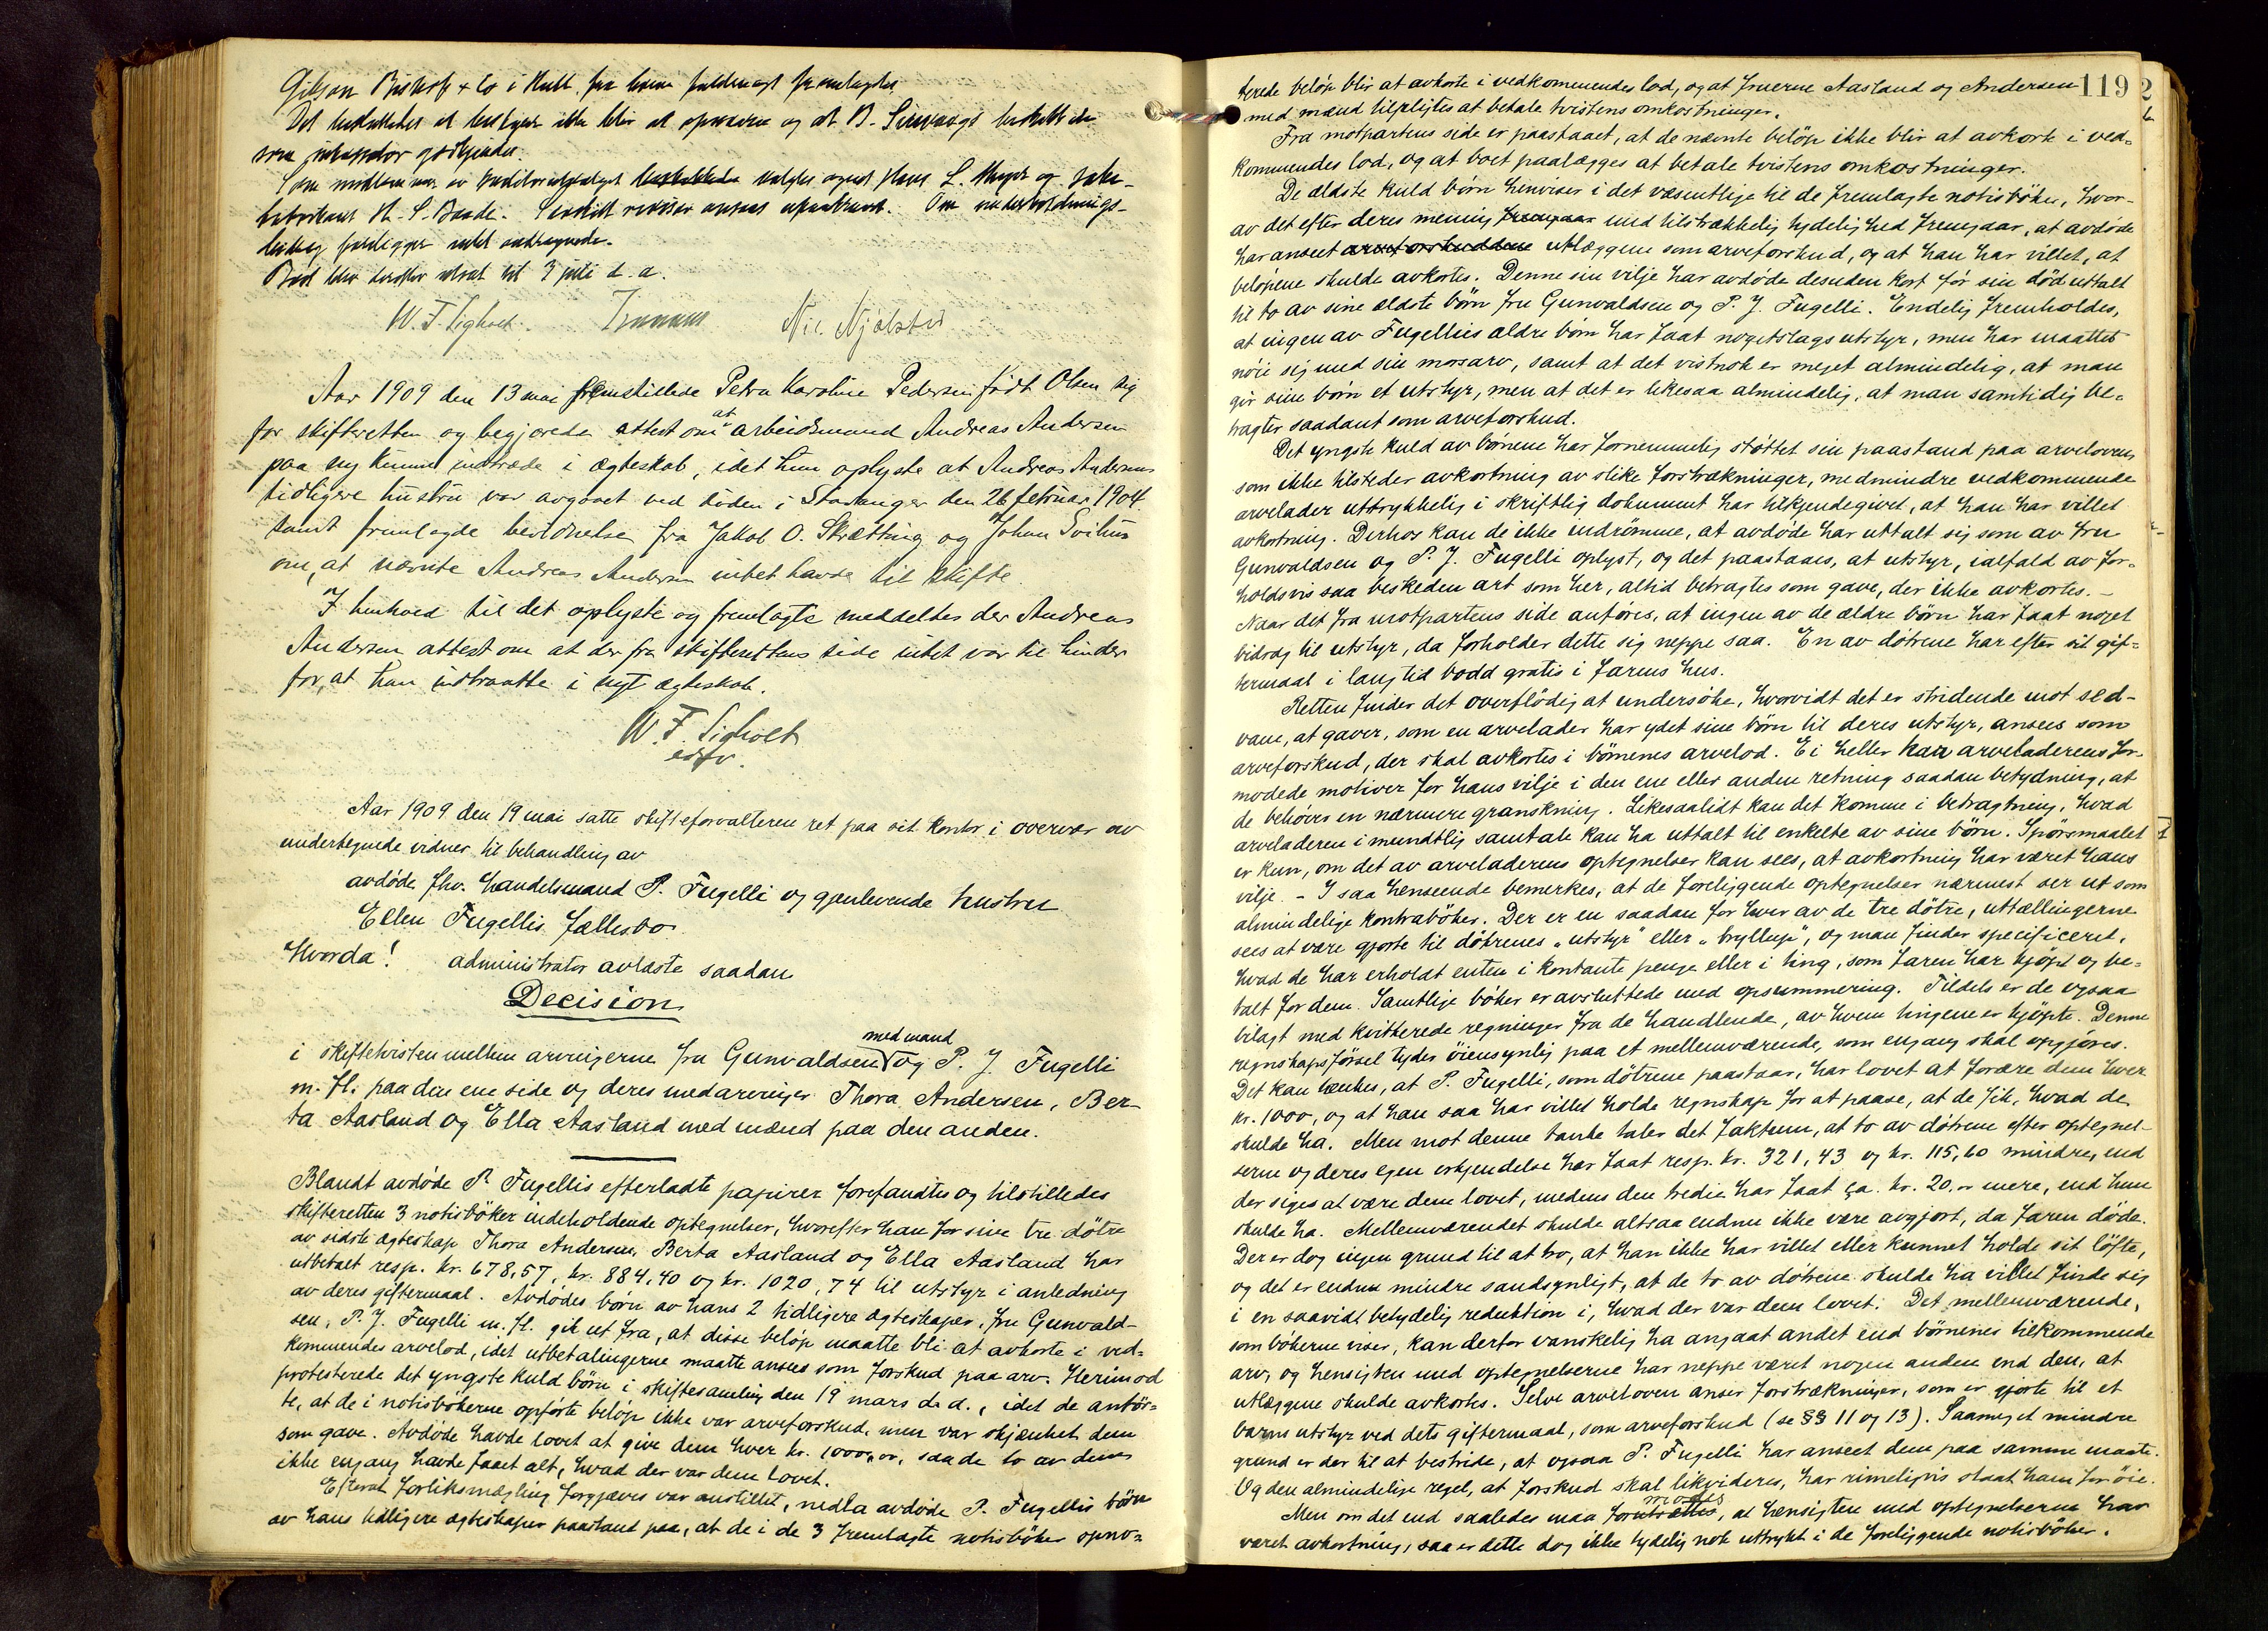 Gibson Bishop & Co i Hull, fra hvem fuldmagt fremlagdes.
Det besluttedes at bestyrer ikke blir at opnævne og at B. 
som inkassator godkjendes.
Som medlemmer av valgtes agent Hans L. Meyer og fabr-
N. S. Baade. Om underholdnings-
bidrag foreligger intet andragende.
Boet blev derefter utsat til 3 juli d. a.
W. F. Sigholt. Nic. Njølstad
Aar 1909 den 13 mai fremstillede Petra Karoline Pedersen født Olsen sig
for skifteretten og begjærede attest om at arbeidsmand Andreas Andersen
paa ny kunde indtræde i ægteskab, idet hun oplyste at Andreas Andersens
tidligere hustru var avgaaet ved døden i Stavanger den 26 februar 1904.
samt fremlagde bevidnelse fra Jakob O. Skrætting og Johan Svihus
om, at nævnte Andreas Andersen intet havde til skifte.
I henhold til det oplyste og fremlagte meddeltes der Andreas
Andersen attest om at der fra skifterettens side intet var til hinder
for, at han indtraatte i nyt ægteskab.
W. F. Sigholt
edsv.
Aar 1909 den 19 mai satte skifteforvalteren ret paa sit kontor i overvær av
undertegnede vidner til behandling av
avdøde fhv. handelsmand P. Fugelli og gjenlevende hustru
Ellen Fugellis fællesbo.
Hvorda! administrator avlæste saadan
Decision
i skiftetvisten mellem arvingerne fru Gunvaldsen med mand og P. J. Fugelli
m. fl. paa den ene side og deres medarvinger Thora Andersen, Ber-
ta Aasland og Ella Aasland med mænd paa den anden.
Blandt avdøde P. Fugellis efterladte papirer forefandtes og tilstilledes
skifteretten 3 notisbøker indeholdende optegnelser, hvorefter han for sine tre døtre
av sidste ægteskap Thora Andersen, Berta Aasland og Ella Aasland har
utbetalt resp. kr. 678,57, kr. 884,40 og kr. 1020,74 til utstyr i anledning
av deres giftermaal. Avdødes børn av hans 2 tidligere ægteskaper, fru Gunvald-
sen, P. J. Fugelli m. fl. gik ut fra, at disse beløp maatte bli at avkorte i ved-
kommendes arvelod, idet utbetalingerne maatte ansees som forskud paa arv. Herimod
protesterede det yngste kuld børn i skiftesamling den 19 mars d. a., idet de anfør-
te, at de i notisbøkerne opførte beløp ikke var arveforskud, men var skjænket dem
som gave. Avdøde havde lovet at give dem hver kr. 1000,00, saa de to av dem
ikke engang havde faaet alt, hvad der var dem lovet.
Efterat forliksmægling forgjæves var anstillet, nedla avdøde P. Fugellis børn
av hans tidligere ægteskaper paastand paa, at de i de 3 fremlagte notisbøker opno-
119
terede beløp blir at avkorte i vedkommendes lod, og at fruerne Aasland og Andersen
med mænd tilpligtes at betale tvistens omkostninger.
Fra motpartens side er paastaaet, at de nævnte beløp ikke blir at avkorte i ved-
kommendes lod, og at boet paalægges at betale tvistens omkostninger.
De ældste kuld børn henviser i det væsentlige til de fremlagte notisbøker, hvor-
av det efter deres mening fremgaar med tilstrækkelig tydelighed fremgaar, at avdøde
har anseet arveforskuddene utlæggene som arveforskud, og at han har villet, at
beløpene skulde avkortes. Denne sin vilje har avdøde desuden kort før sin død uttalt
til to av sine ældste børn fru Gunvaldsen og P. J. Fugelli. Endelig fremholdes,
at ingen av Fugellis ældre børn har faat nogetslags utstyr, men har maattet
nøie sig med sin morsarv, samt at det vistnok er meget almindelig, at man
gir sine børn et utstyr, men at det er likesaa almindelig, at man samtidig be-
tragter saadant som arveforskud.
Det yngste kuld av børnene har fornemmelig støttet sin paastand paa arveloven,
som ikke tilsteder avkortning av slike forstrækninger, medmindre vedkommende
arvelader uttrykkelig i skriftlig dokument har tilkjendegivet, at han har villet
avkortning. Derhos kan de ikke indrømme, at avdøde har uttalt sig som av fru
Gunvaldsen og P. J. Fugelli oplyst, og det paastaaes, at utstyr, ialfald av for-
holdsvis saa beskeden art som her, altid betragtes som gave, der ikke avkortes. -
Naar det fra motpartens side anføres, at ingen av de ældre børn har faat noget
bidrag til utstyr, da forholder dette sig neppe saa. En av døtrene har efter sit gif-
termaal i lang tid bodd gratis i farens hus.
Retten finder det overflødig at undersøke, hvorvidt det er stridende mot sed-
vane, at gaver, som en arvelader har ydet sine børn til deres utstyr, ansees som
arveforskud, der skal avkortes i børnenes arvelod. Ei heller kan arveladerens for-
modede motiver for hans vilje i den ene eller anden retning saadan betydning, at
de behøver en nærmere granskning. Likesaalidt kan det komme i betragtning, hvad
arveladeren i mundtlig samtale kan ha uttalt til enkelte av sine børn. Spørsmaalet
er kun, om det av arveladerens optegnelser kan sees, at avkortning har været hans
vilje. - I saa henseende bemerkes, at de foreliggende optegnelser nærmest ser ut som
almindelige kontrabøker. Der er en saadan for hver av de tre døtre, uttællingerne
sees at være gjorte til døtrenes „utstyr" eller „bryllup", og man finder specificeret,
hvad de har erholdt enten i kontante penge eller i ting, som faren har kjøpt og be-
talt for dem. Samtlige bøker er avsluttede med opsummering. Tildels er de ogsaa
bilagt med kvitterede regninger fra de handlende, av hvem tingene er kjøpte. Denne
regnskapsførsel tyder øiensynlig paa et mellemværende, som engang skal opgjøres.
Det kan tænkes, at P. Fugelli, som døtrene paastaar, har lovet at forære dem hver
kr. 1000, og at han saa har villet holde regnskap for at paase, at de fik, hvad de
skulde ha. Men mot denne tanke taler det faktum, at to av døtrene efter optegnel-
serne og deres egen erkjendelse har faat resp. kr. 321,43 og kr. 115,60 mindre, end
der siges at være dem lovet, medens den tredie har faat ca. kr. 20,- mere, end hun
skulde ha. Mellemværendet skulde altsaa endnu ikke være avgjort, da faren døde.
Der er dog ingen grund til at tro, at han ikke har villet eller kunnet holde sit løfte,
og det er endnu mindre sandsynligt, at de to av døtrene skulde ha villet finde sig
i en saavidt betydelig reduktion i, hvad der var dem lovet. Det mellemværende,
som bøkerne viser, kan derfor vanskelig ha angaat andet end børnenes tilkommende
arv, og hensigten med optegnelserne har neppe været nogen anden end den, at
utlæggene skulde avkortes. Selve arveloven anser forstrækninger, som er gjorte til et
barns utstyr ved dets giftermaal, som arveforskud (se §§ 11 og 13). Saameget mindre
grund er der til at bestride, at ogsaa P. Fugelli har anseet dem paa samme maate.
Og den almindelige regel, at forskud skal likvideres, har rimeligvis staat ham for øie.
Men om det end saaledes maa formodes, at hensigten med optegnelserne har
været avkortning, saa er dette dog ikke tydelig nok uttrykt i de foreliggende notisbøker.